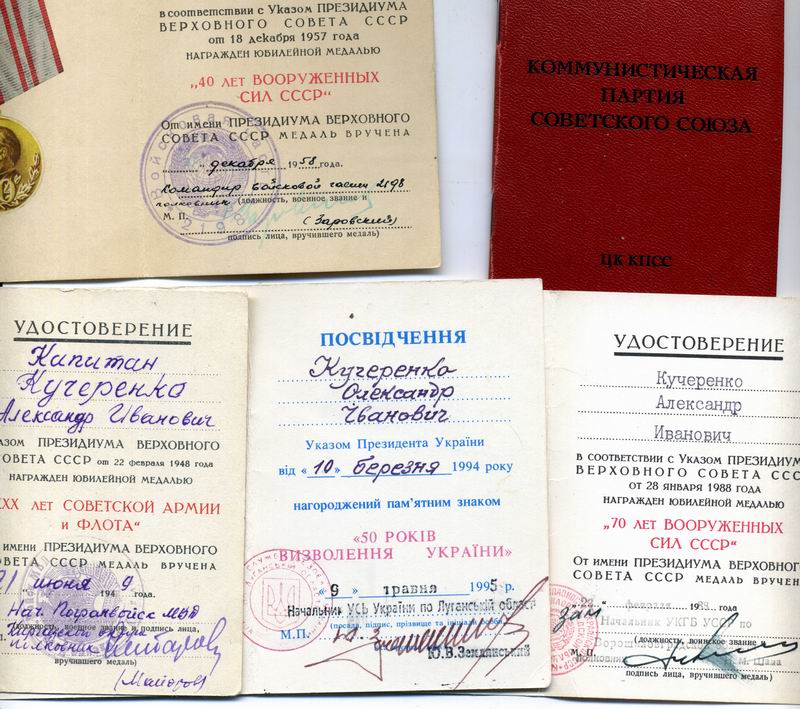 в соответствии с Указом ПРЕЗИДИУМА
ВЕРХОВНОГО СОВЕТА СССР
от 18 декабря 1957 года
НАГРАЖДЕН ЮБИЛЕЙНОЙ МЕДАЛЬЮ
„40 ЛЕТ ВООРУЖЕННЫХ
СИЛ СССР“
От имени ПРЕЗИДИУМА ВЕРХОВНОГО
СОВЕТА СССР МЕДАЛЬ ВРУЧЕНА
декабря 1958 года.
Командир войсковой части 2198
полковник (должность, военное звание и
М. П. (Заровский)
подпись лица, вручившего медаль)
КОММУНИСТИЧЕСКАЯ
ПАРТИЯ
СОВЕТСКОГО СОЮЗА
ЦК КПСС
УДОСТОВЕРЕНИЕ
Капитан
Кучеренко
Александр Иванович
азом ПРЕЗИДИУМА ВЕРХОВНОГО
ОВЕТА СССР от 22 февраля 1948 года
НАГРАЖДЕН ЮБИЛЕЙНОЙ МЕДАЛЬЮ
ХХ ЛЕТ СОВЕТСКОЙ АРМИИ
и ФЛОТА“
имени ПРЕЗИДИУМА ВЕРХОВНОГО
СОВЕТА СССР МЕДАЛЬ ВРУЧЕНА
21 июня 1949 года.
Нач. Погранвойск МВД
округа
(должность, военное звание и подпись лица,
полковник
вручившего медаль)
(Майоров)
ПОСВІДЧЕННЯ
Кучеренко
Олександр
Іванович
Указом Президента України
від «10» березня 1994 року
нагороджений пам’ятним знаком
«50 РОКІВ
ВИЗВОЛЕННЯ УКРАЇНИ»
«9» травня 1995 р.
Начальник УСБ України по Луганській області
(посада, підпис, прізвище та ініціали особи)
М.П.
Ю.В.Землянський
УДОСТОВЕРЕНИЕ
Кучеренко
Александр
Иванович
В СООТВЕТСТВИИ С Указом ПРЕЗИДИУМ
ВЕРХОВНОГО СОВЕТА ССС
ОТ 28 ЯНВАРЯ 1988 ГОДА
НАГРАЖДЕН ЮБИЛЕЙНОЙ МЕДАЛЬЮ
„70 ЛЕТ ВООРУЖЕННЫХ
СИЛ СССР“
От имени ПРЕЗИДИУМА ВЕРХОВНОГ
СОВЕТА СССР МЕДАЛЬ ВРУЧЕН
23 февраля 1988 г.
зам
Начальник УКГБ УССР по
(должность, воинское звание
М. П.
подпись лица, вручившего медаль)